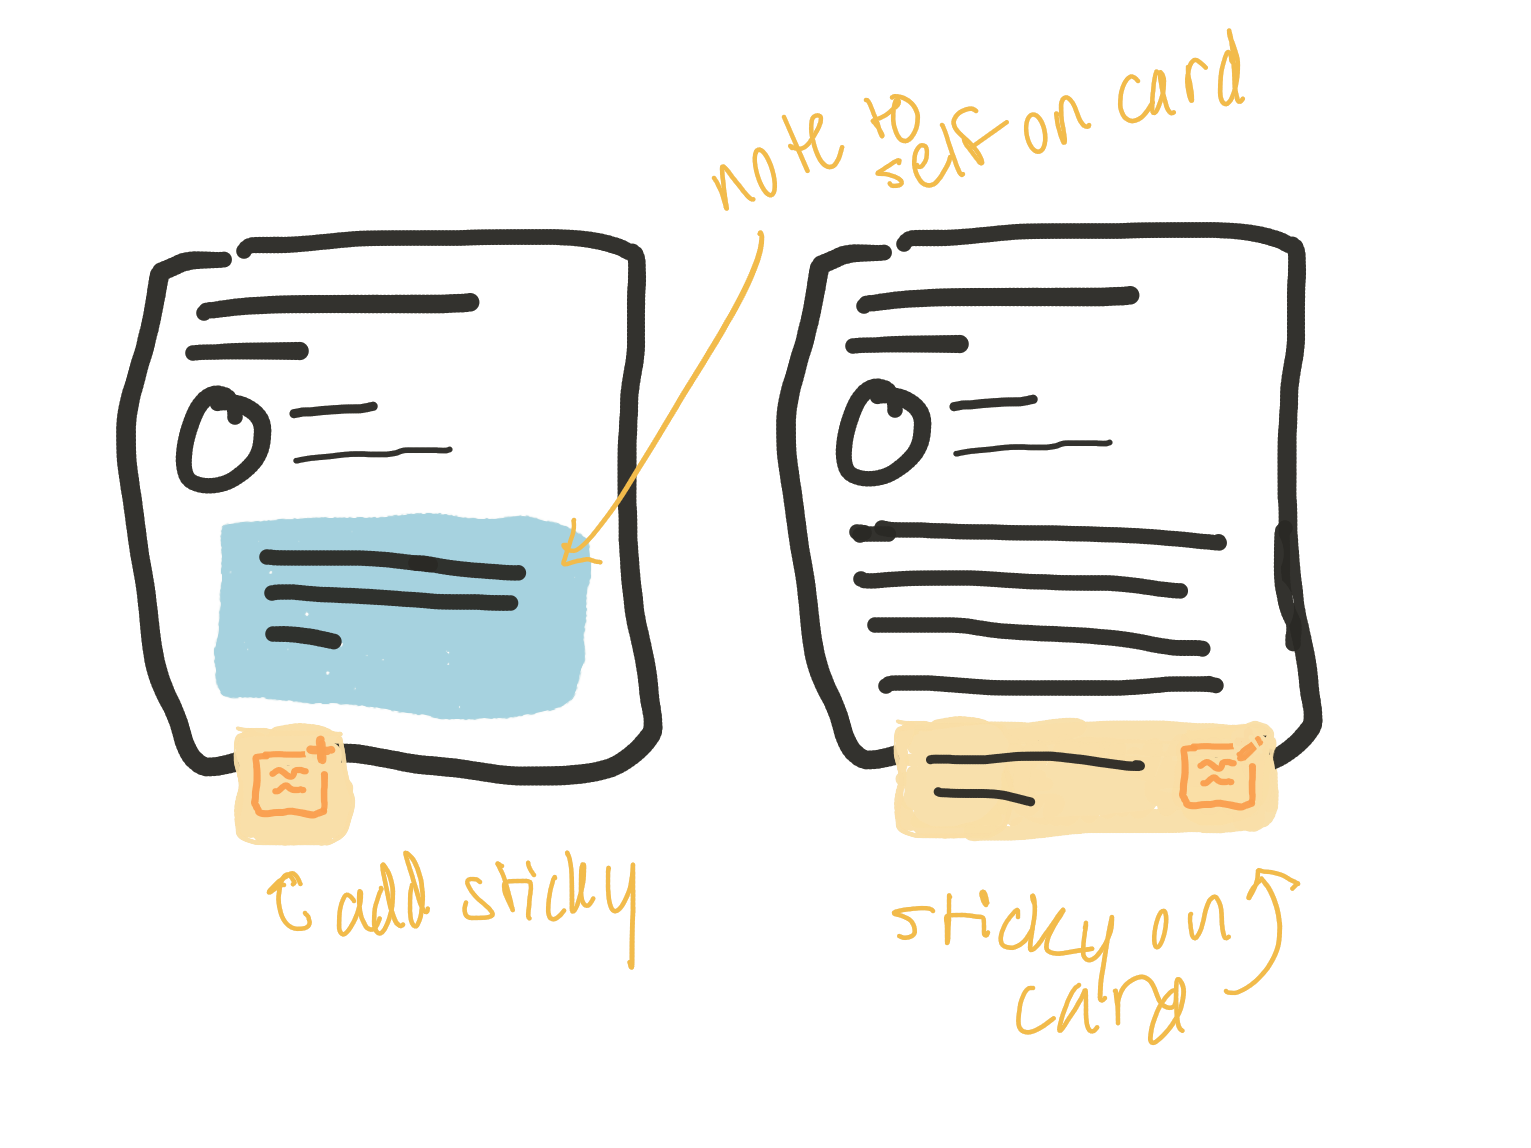 note to self on card
add sticky
sticky on
card